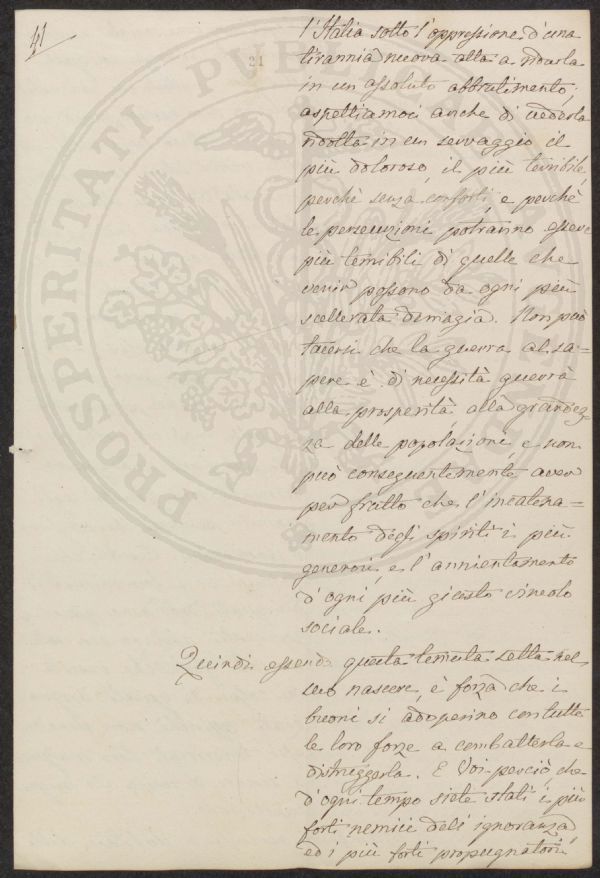 41
21
PROSPERITATI PVBLI
l'Italia sotto l'oppressione d'una
tirannia nuova atta a ridurla
in un assoluto abbrutimento;
aspettiamoci anche di vederla
ridotta in un servaggio il
più doloroso, il più terribile,
perchè senza conforti, e perchè
le persecuzioni potranno essere
più terribili di quelle che
venir possono da ogni più
scellerata demagogia. Non può
tacersi che la guerra al sa=
pere è di necessità guerra
alla prosperità, alla grandez
za delle popolazioni, e non
può conseguentemente aver
per frutto che l'incatena=
mento degli spiriti i più
generosi, e l'annientamento
d'ogni più giusto vincolo
sociale.
Quindi essendo questa temuta setta nel
suo nascere, è forza che i
buoni si adoperino con tutte
le loro forze a combatterla e
distruggerla. E Voi perciò che
d'ogni tempo siete stati i più
forti nemici dell'ignoranza
ed i più forti propugnatori